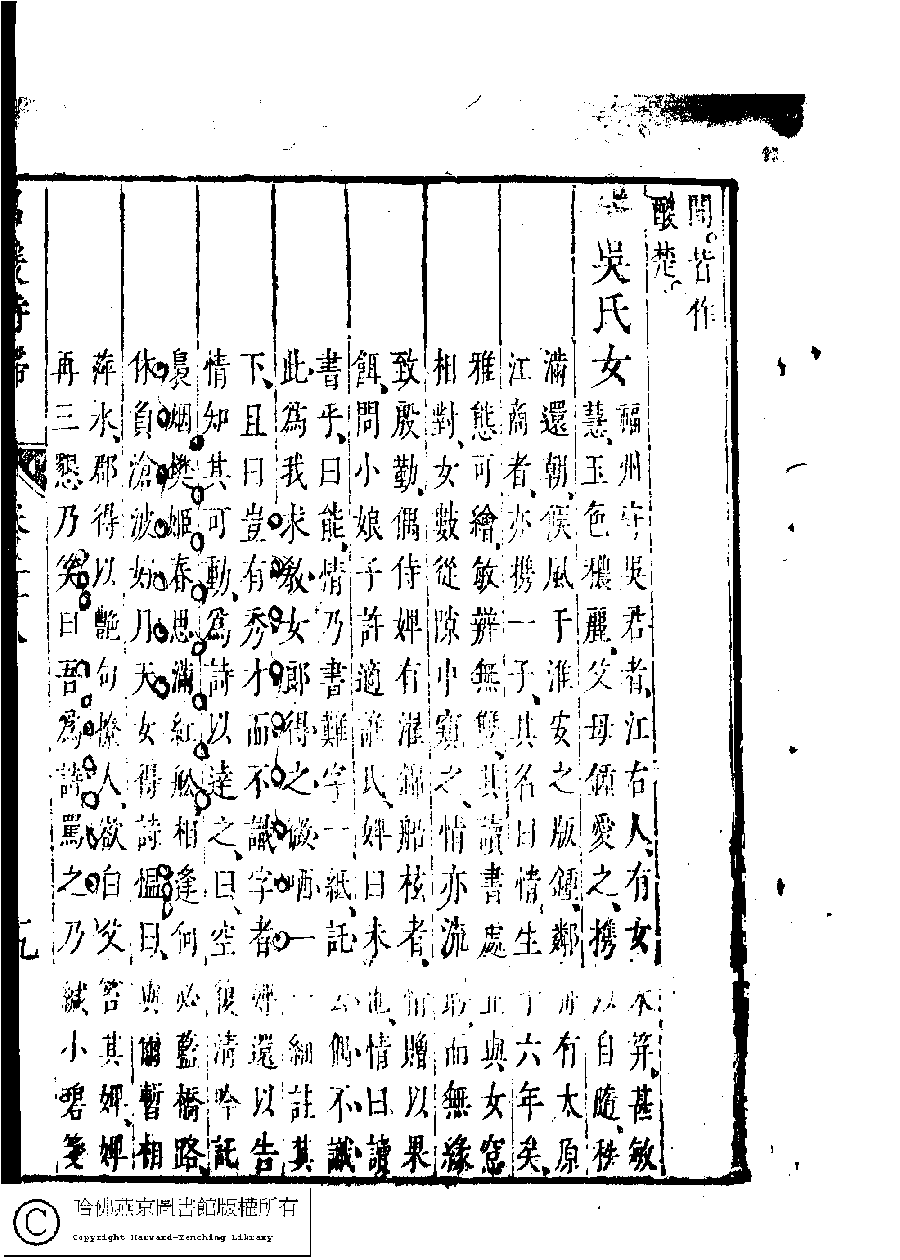 昔作
酸楚。
吳氏女
福州守吳君者、江右人、有女未筓甚敏
慧、玉色穠麗、父母鍾愛之、携以自隨、秩
滿還朝、候風于淮安之版鍤、鄰舟有太原
江商者、亦携一子、其名曰情、生十六年矣、
雅態可繪、敏辨無雙、其讀書處正與女窓
相對、女數從隙中窺之、情亦流盼、而無緣
致殷勤、偶侍婢有濯錦船舷者、情贈以果
餌、問小娘子許適誰氏、婢曰未也、情曰讀
書乎、曰能、情乃書難字一紙、託云偶不識
此、爲我求教、女郎得之、微哂、一一細註其
下、且曰豈有秀才而不識字者、婢還以告
情知其可動、爲詩以達之、曰、空復清吟託
裊烟、樊姬春思滿紅船、相逢何必藍橋路、
休負滄波好月天、女得詩慍曰、與爾暫相
萍水、那得以艷句撩人、欲白父笞其婢、婢
再三懇乃笑曰吾爲詩罵之乃緘小碧箋
名媛詩歸
哈佛燕京圖書館版權所有
Copyright Harvard-Yenching Library